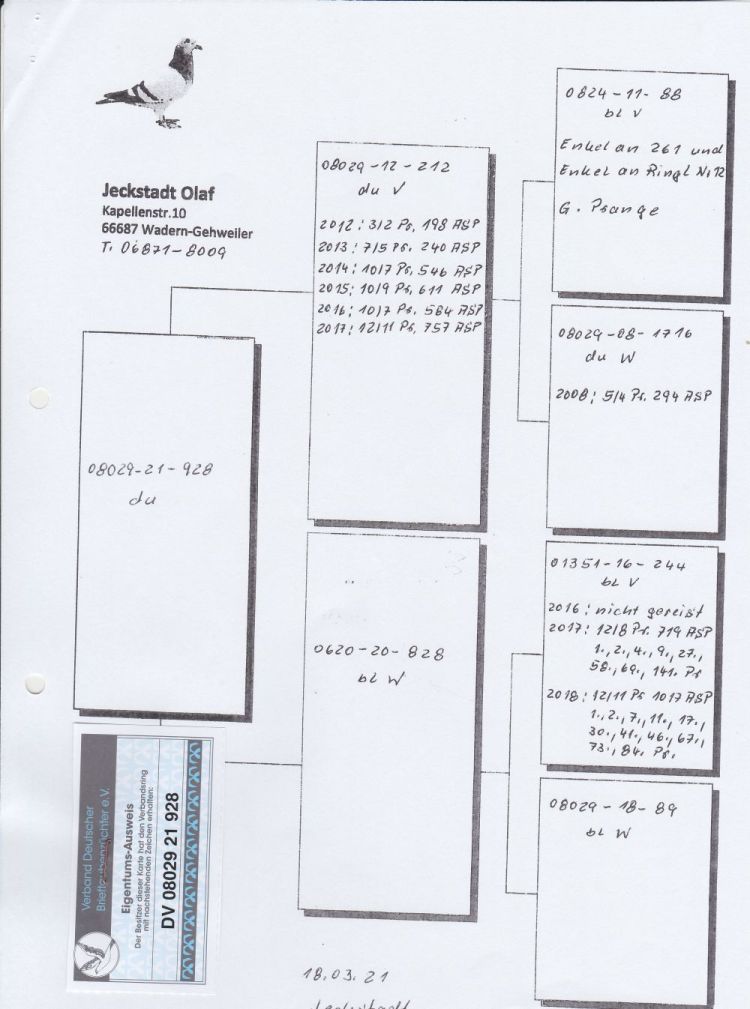 Jeckstadt Olaf
Kapellenstr.10
66687 Wadern-Gehweiler
T. 06871-8009
08029-21-928
du
08029-12-212
du V
2012: 3/2 Pr, 198 ASP
2013: 7/5 Pr. 240 ASP
2014: 10/7 Pr, 546 ASP
2015: 10/9 Pr, 611 ASP
2016: 10/7 Pr. 584 ASP
2017: 12/11 Pr, 757 ASP
0620-20-828
bl W
0824-11-88
bl V
Enkel an 261 und
Enkel an Ringl Nr 12
G. Prange
08029-08-1716
du W
2008: 5/4 Pr. 294 ASP
01351-16-244
bl V
2016: nicht gereist
2017: 12/8 Pr. 719 ASP
1., 2., 4., 9., 27.,
58., 69., 141. Pr
2018: 12/11 Pr 1017 ASP
1., 2., 7., 11., 17.,
30., 41., 46., 67.,
73., 84. Pr.
08029-18-89
bl W
Verband Deutscher
Brieftaubenzüchter e.V.
Eigentums-Ausweis
Der Besitzer dieser Karte hat den Verbandsring
mit nachstehenden Zeichen erhalten:
DV 08029 21 928
18.03.21
Jeckstadt